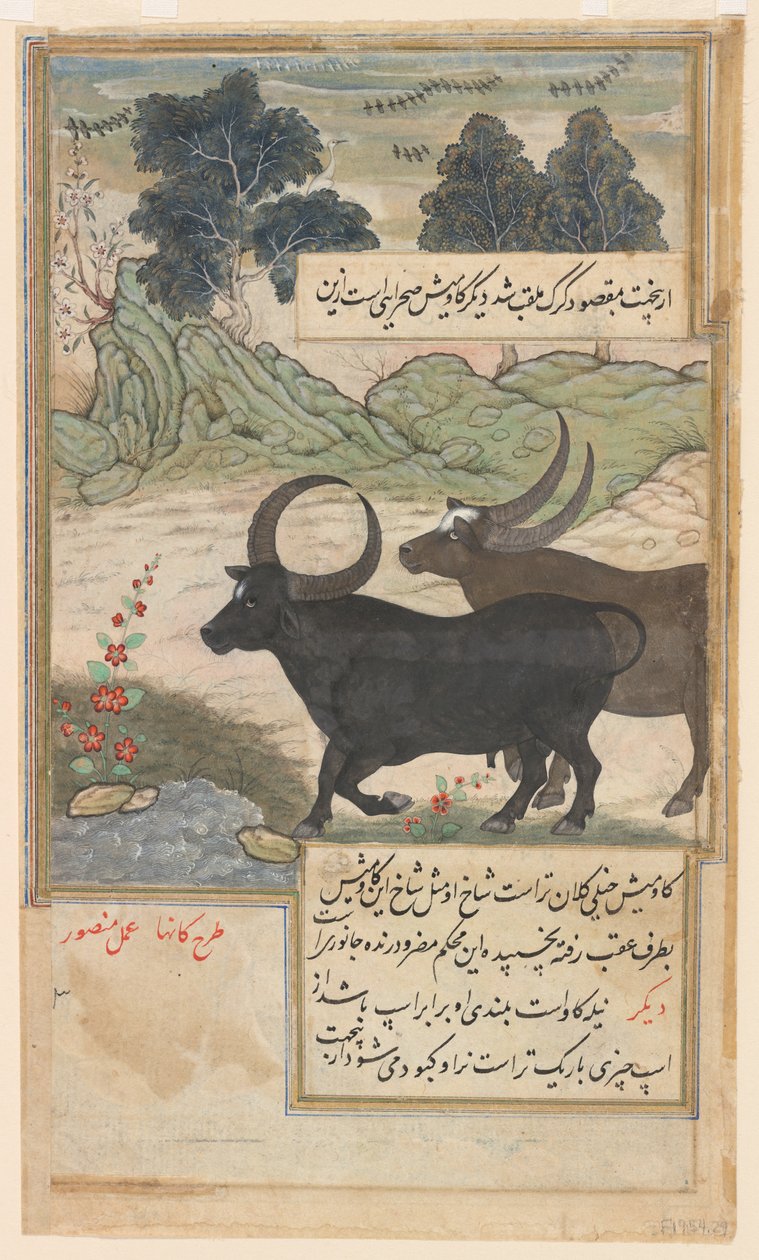 ازینجهت بمقصود کرک ملقب شد دیگر گاومیش صحرایی است ازین
گاومیش خیلی کلان تر است شاخ او مثل شاخ این گاومیش
بطرف عقب رفته نچسپیده این محکم مضر و درنده جانوری است
دیگر نیله گاو است بلندی او برابر اسپ باشد از
اسپ چیزی باریک تر است نر او کبود می شود ازینجهت
طرح کانها عمل منصور
F1954.29